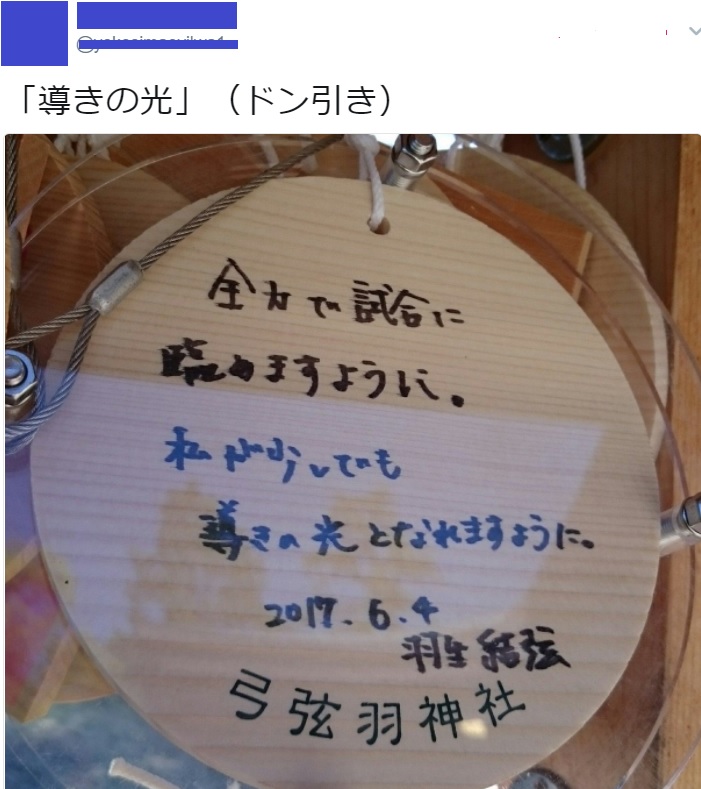 「導きの光」（ドン引き）
全力で試合に
臨めますように。
私が少しでも
導きの光となれますように。
2017.6.4
羽生結弦
弓弦羽神社